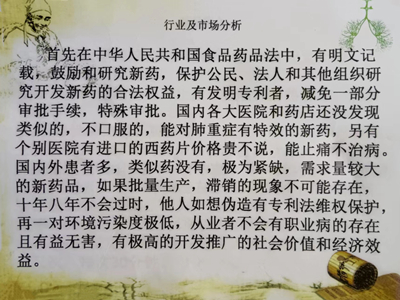 行业及市场分析
首先在中华人民共和国食品药品法中，有明文记
载，鼓励和研究新药，保护公民、法人和其他组织研
究开发新药的合法权益，有发明专利者，减免一部分
审批手续，特殊审批。国内各大医院和药店还没发现
类似的，不口服的，能对肺重症有特效的新药，另有
个别医院有进口的西药片价格贵不说，能止痛不治病。
国内外患者多，类似药没有，极为紧缺，需求量较大
的新药品，如果批量生产，滞销的现象不可能存在，
十年八年不会过时，他人如想伪造有专利法维权保护，
再一对环境污染度极低，从业者不会有职业病的存在
且有益无害，有极高的开发推广的社会价值和经济效
益。